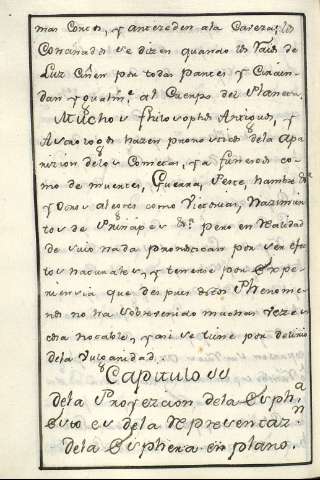 mas Cortos, y anteceden ala Caveza; los
Coronados se dizen quando los Raios de
Luz Ciñen por todas partes y Circun-
dan ygualm.e al Cuerpo del Planeta.
Muchos Philosophos Antiguos, y
Astrologos hazen pronosticos dela apa
rizion delos Cometas, ya funestos co-
mo de muertes, Guerra, Peste, hambre &.a
y otros alegres como Victorias, Nazimien
tos de Prinzipes &.a pero en Realidad
de suio nada pronostican por ser efec
tos naturales, y tenerse por Expe-
rienzia que despues destos Phenome-
nos no ha sobrevenido muchas vezes
cosa notable, y asi se tiene por delirio
dela Vulgaridad.
Capitulo
dela Proyeccion dela Esphe
esto es dela Representaz.n
dela Esphera en plano.